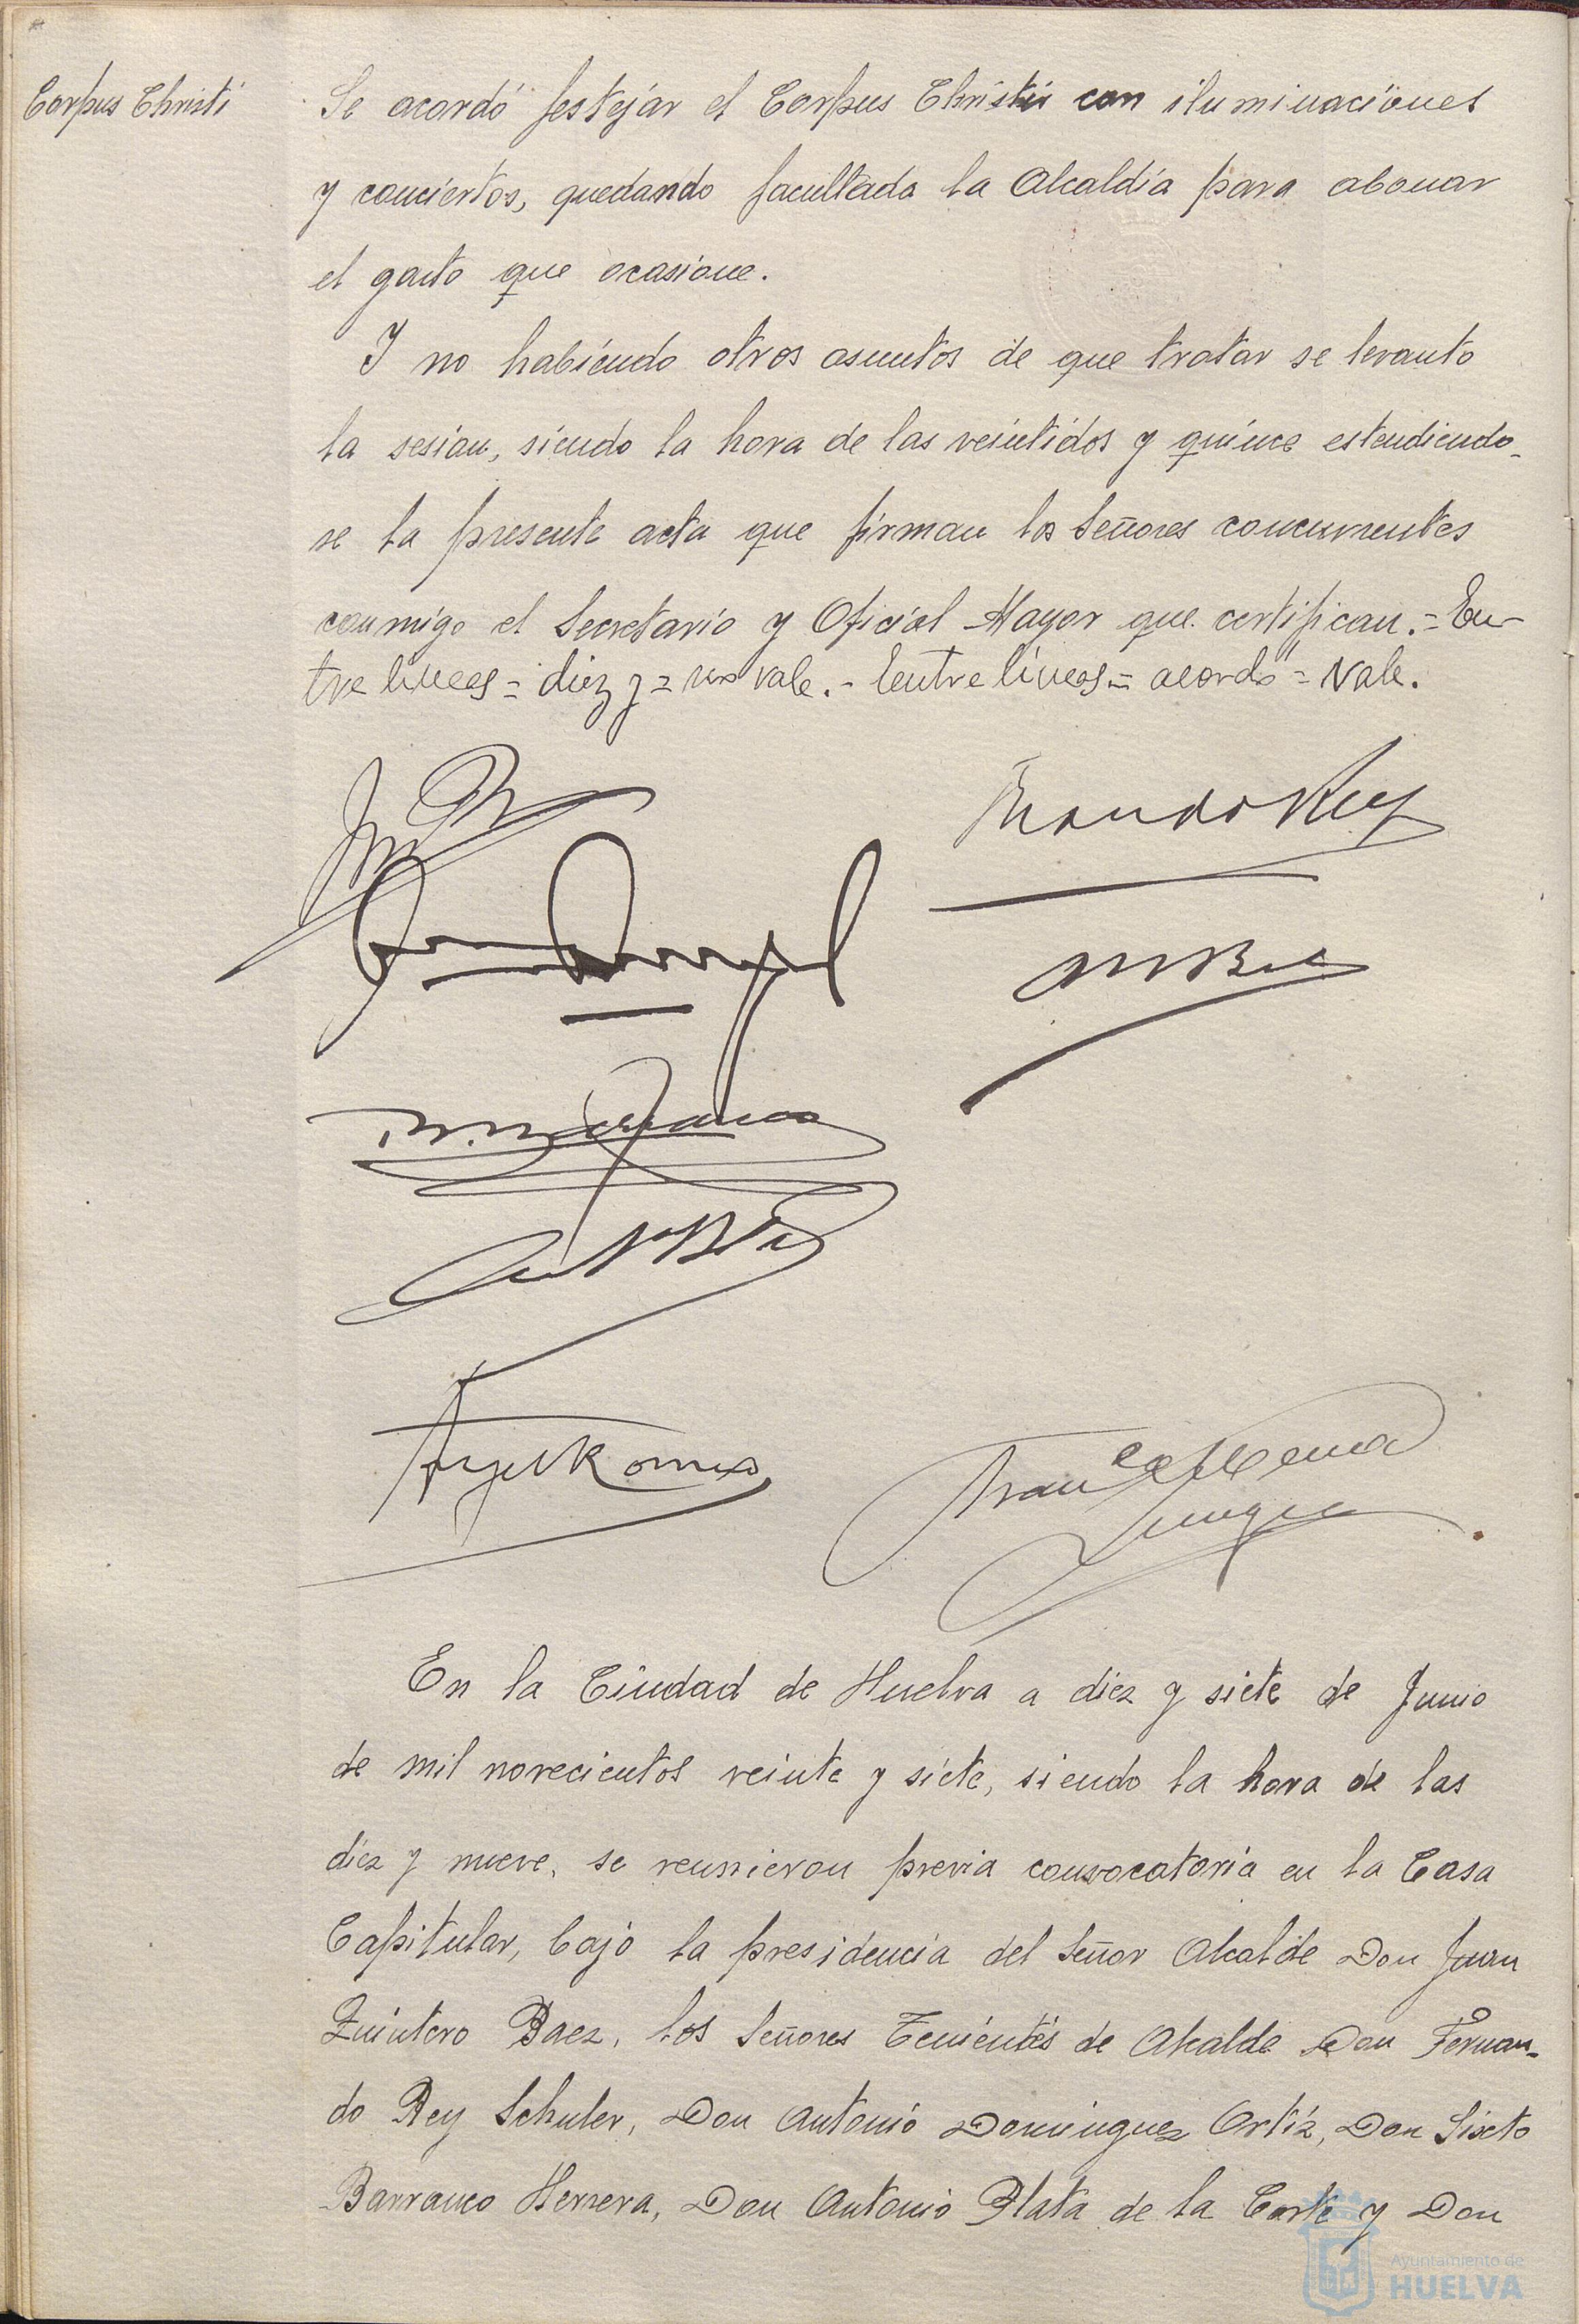 Corpus Christi
Se acordó festejar el Corpus Christi con iluminaciones
y conciertos, quedando facultada la Alcaldía para abonar
el gasto que ocasione.
Y no habiendo otros asuntos de que tratar se levanto
la sesion, siendo la hora de las veintidos y quince estendiendo-
se la presente acta que firman los Señores concurrentes
conmigo el Secretario y Oficial Mayor que certifican.=En-
tre lineas = diez y = no vale.- Eentre líneas = acordó = Vale.
Angel Romero
En la Ciudad de Huelva a diez y siete de Junio
de mil novecientos veinte y siete, siendo la hora de las
diez y nueve, se reunieron previa convocatoria en la Casa
Capitular, bajo la presidencia del Señor Alcalde Don Juan
Quintero Baez, los Señores Tenientes de Alcalde Don Fernan-
do Rey Schuler, Don Antonio Dominguez Ortiz, Don Sixto
Barranco Herrera, Don Antonio Plata de la Corte y Don
Ayuntamiento de
HUELVA